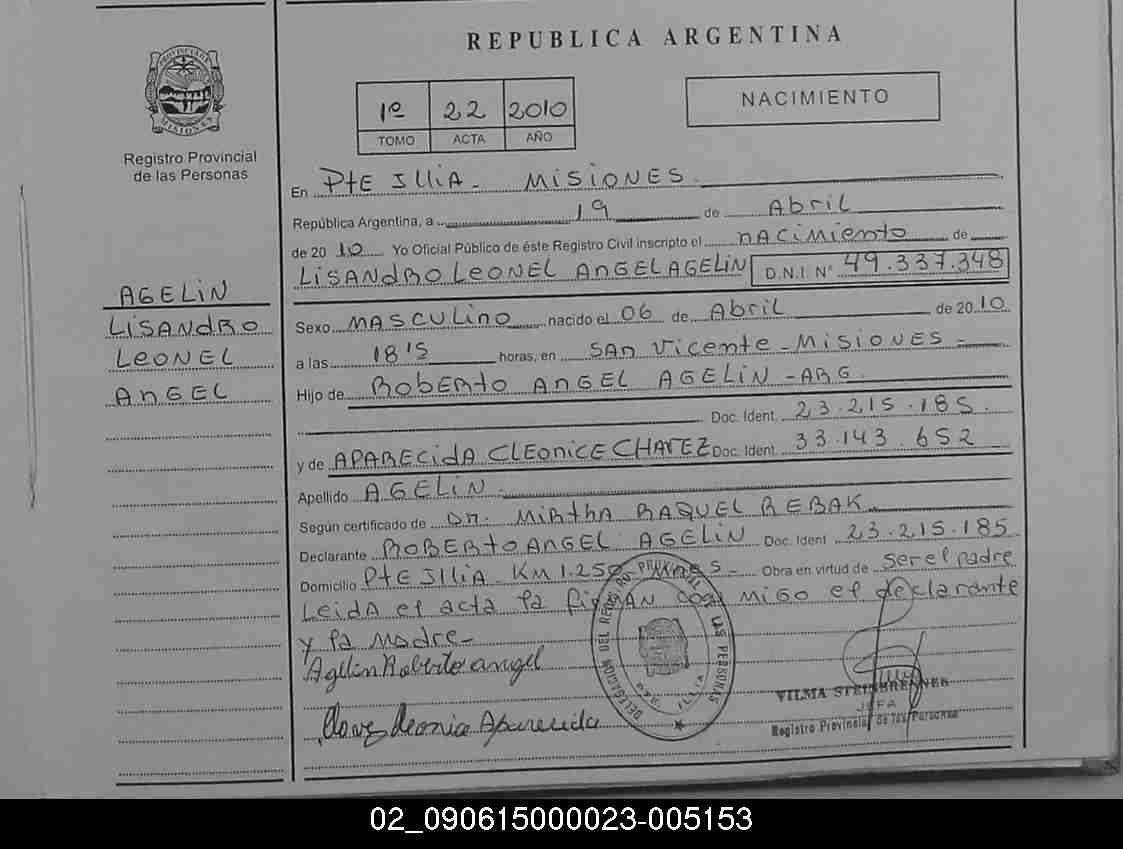 REPUBLICA ARGENTINA
PROVINCIA DE
MISIONES
Registro Provincial
de las Personas
1º 22 2010
TOMO ACTA AÑO
NACIMIENTO
En PtE IlliA - MISIONES
República Argentina, a 19 de Abril
de 2010 Yo Oficial Público de éste Registro Civil inscripto el nAcimiento de
LISANdRO LEONEL AnGEL AGELIN D.N.I. Nº 49.337.348
AGELIN
LISANdRO
LEONEL
AnGEL
Sexo MASCULINO nacido el 06 de Abril de 2010
a las 18'5 horas, en SAn Vicente - MISIONES -
Hijo de RObERtO AnGEL AGELIN - ARG.
Doc. Ident. 23.215.185.
y de APARECIdA CLEonICE CHAVEZ Doc. Ident. 33.143.652
Apellido AGELIN -
Según certificado de DR. MIRthA RAQUEL REBAK
Declarante ROBERTO ANGEL AGELIN Doc. Ident 23.215.185
Domicilio PtE IlliA - KM 1.250 - Obra en virtud de ser el padre
LeidA el acta la firMAN con migo el declarante
y la madre -
Agelin Roberto angel
Aparecida
DELEGACION DEL REGISTRO PROVINCIAL DE LAS PERSONAS
VILMA STEINBRENNER
JEFA
Registro Provincial de las Personas
02_090615000023-005153